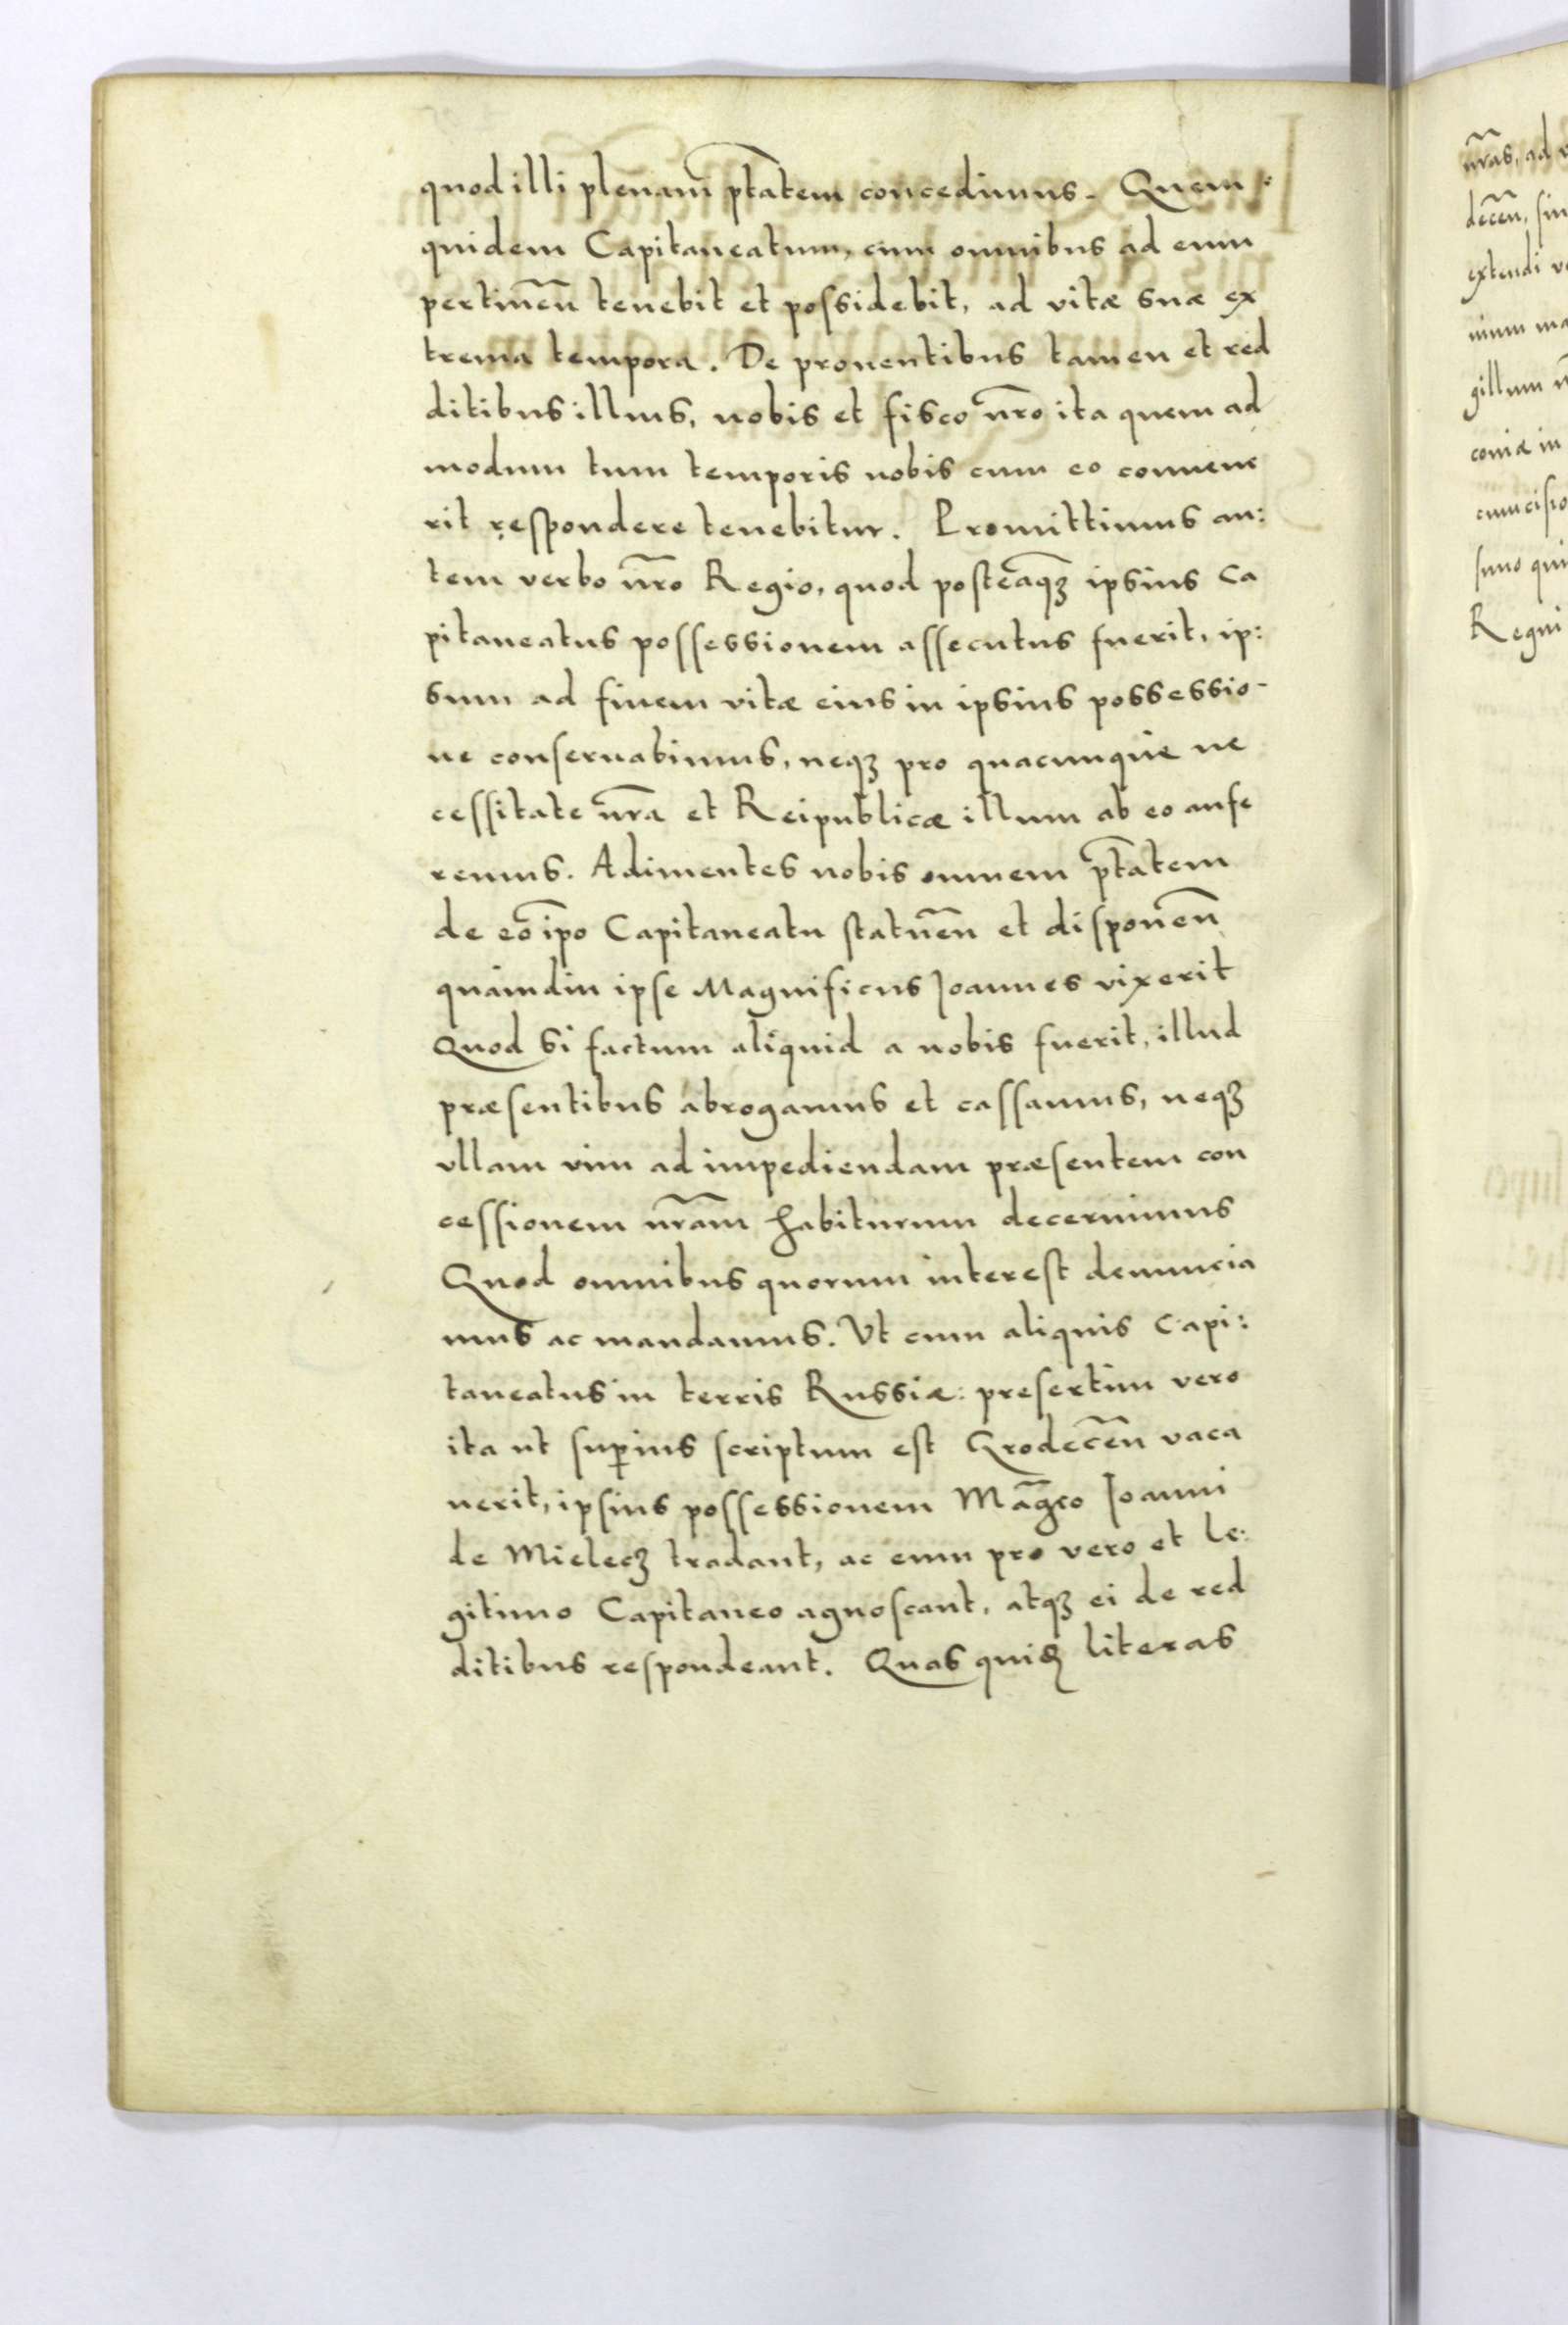 quod illi plenam ptãtem concedimus. Quem:
quidem Capitaneatum, cum omnibus ad eum
pertineñ tenebit et possidebit, ad vitæ suæ ex
trema tempora. De prouentibus tamen et red
ditibus illius, nobis et fisco nr̃o ita quem ad
modum tum temporis nobis cum eo conuene
rit respondere tenebitur. Promittimus au:
tem verbo nr̃o Regio, quod posteaqꝫ ipsius Ca
pitaneatus possessionem assecutus fuerit, ip:
sum ad finem vitæ eius in ipsius possessio-
ne conseruabimus, neqꝫ pro quacunque ne
cessitate nr̃a et Reipublicæ illum ab eo aufe
remus. Adimentes nobis omnem ptãtem
de eo ip̃o Capitaneatu statueñ et disponeñ
quamdiu ipse Magnificus Joannes vixerit
Quod si factum aliquid a nobis fuerit, illud
præsentibus abrogamus et cassamus, neqꝫ
vllam vim ad impediendam præsentem con
cessionem nr̃am habiturum decernimus
Quod omnibus quorum interest denuncia
mus ac mandamus. Vt cum aliquis Capi:
taneatus in terris Russiæ: presertim vero
ita ut suꝑius scriptum est Grodeceñ vaca
uerit, ipsius possessionem Mag̃co Joanni
de Mielecꝫ tradant, ac eum pro vero et le:
gitimo Capitaneo agnoscant, atqꝫ ei de red
ditibus respondeant. Quas quiꝫ literas
nr̃as, ad
deceñ,
extendi
gillum
coniæ in
Regni